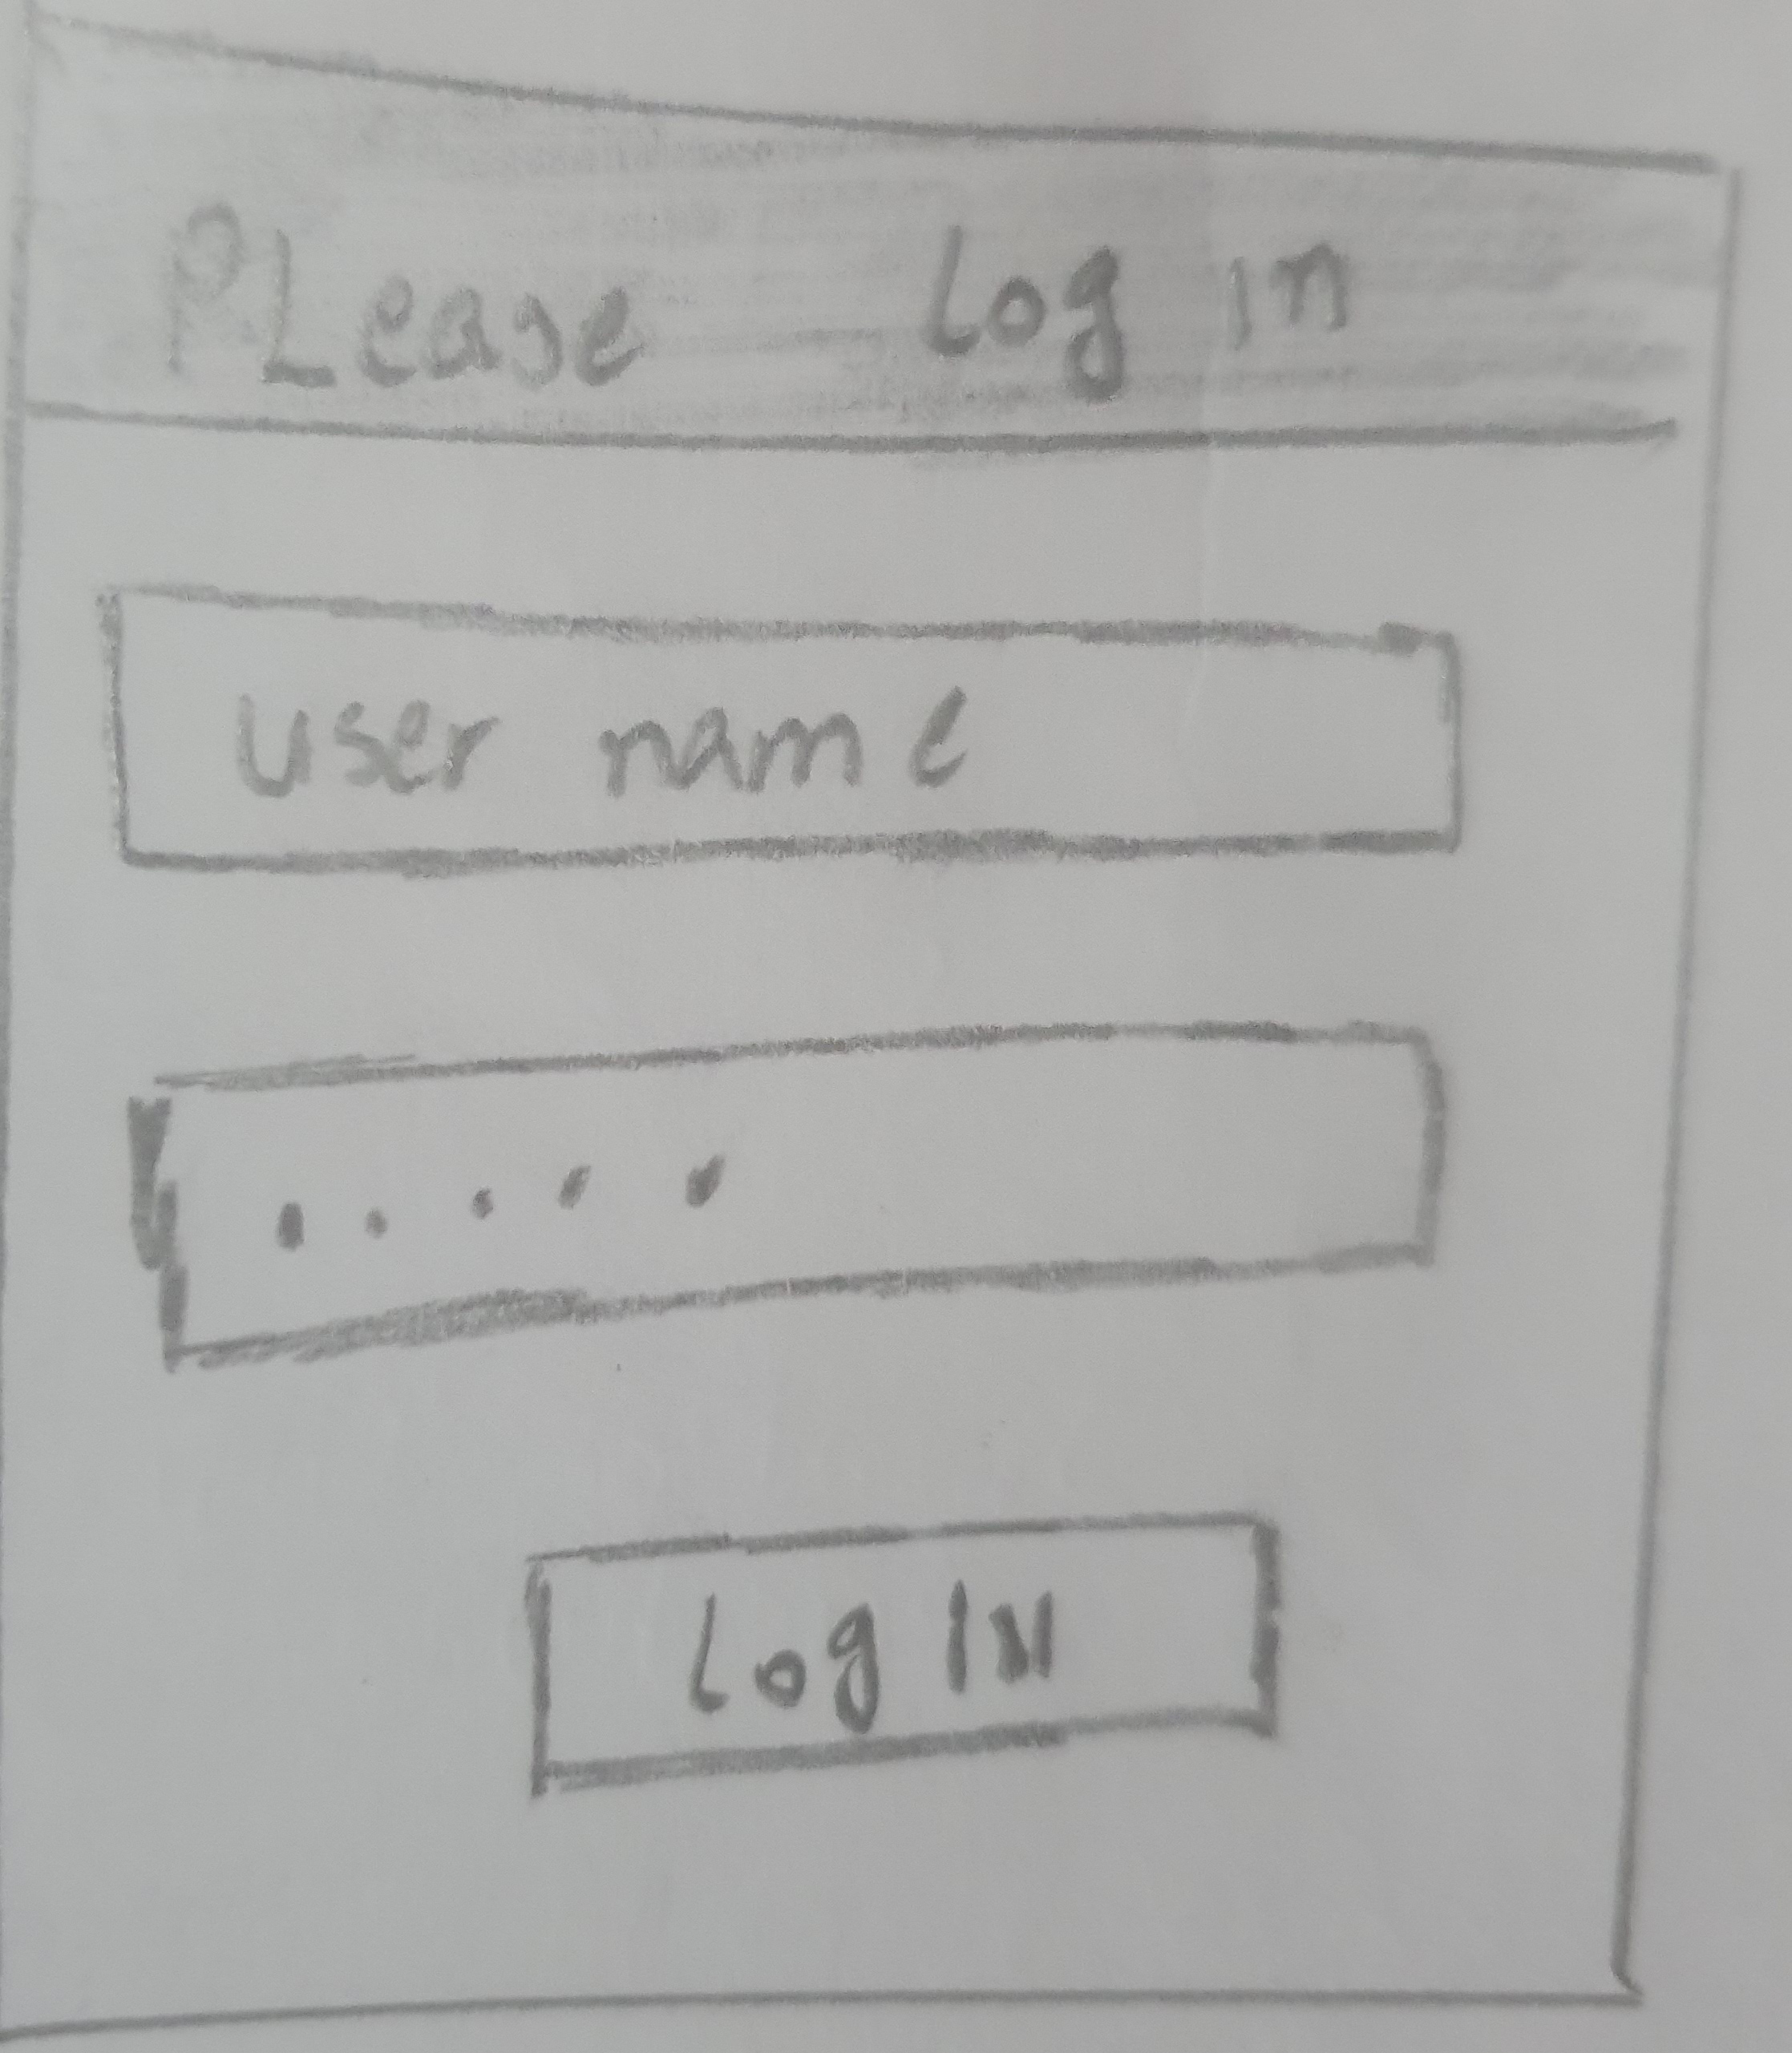 PLease Log in
user name
.....
Log IN